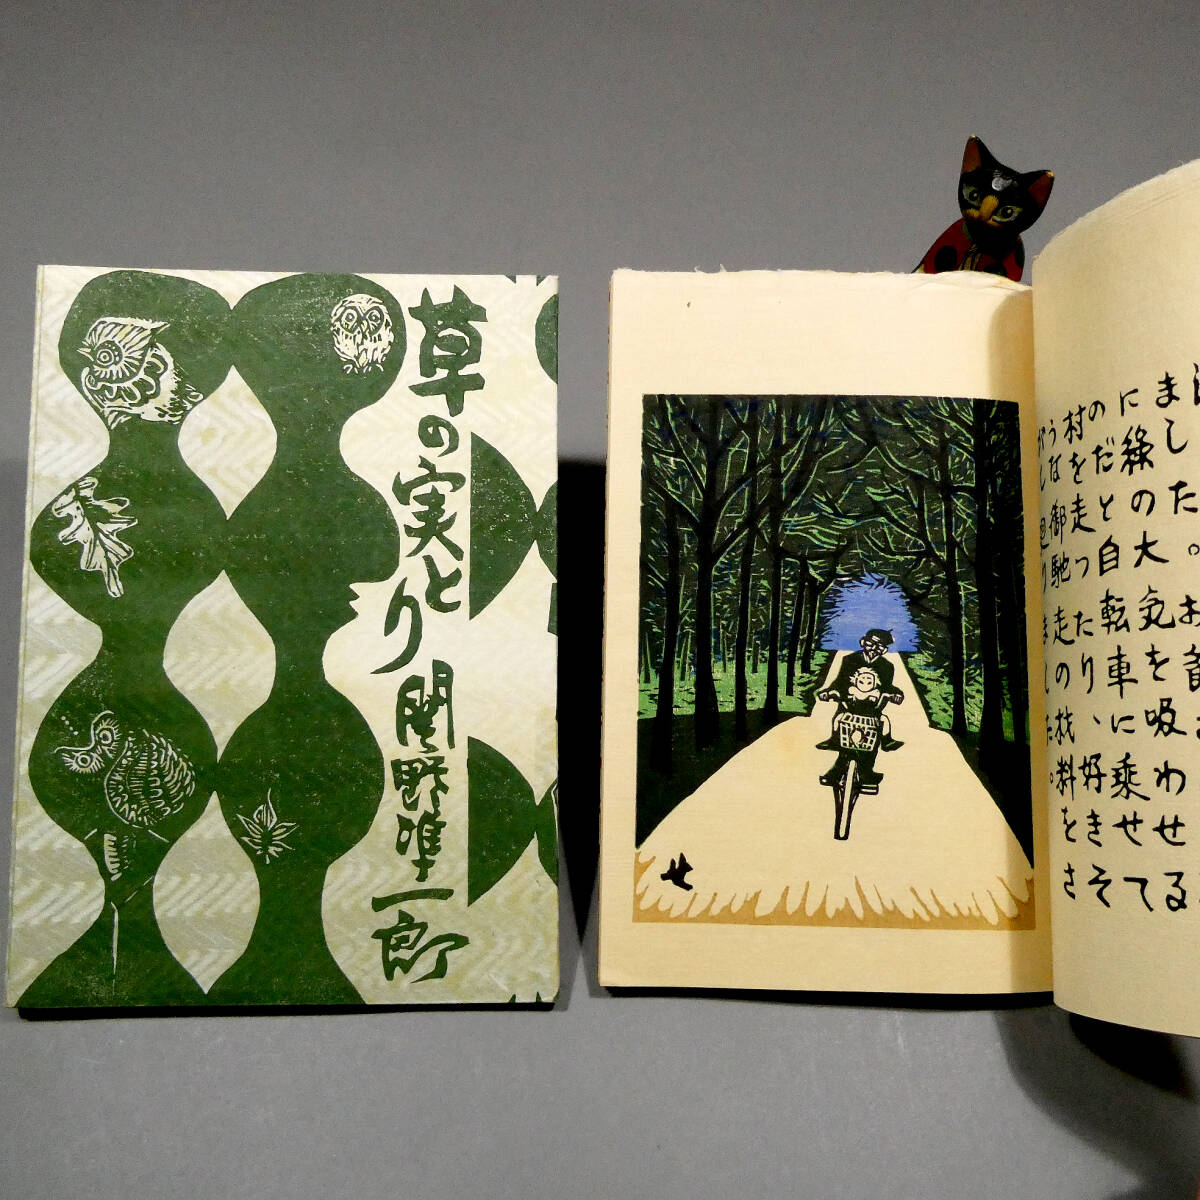 草の実とり
関野凖一郎
ました。お
に綠の大気を吸わせる
のだと自転車に乗せて
村を走ったり、好きそ
うな御馳走の材料をさ
がし廻りました。
せ